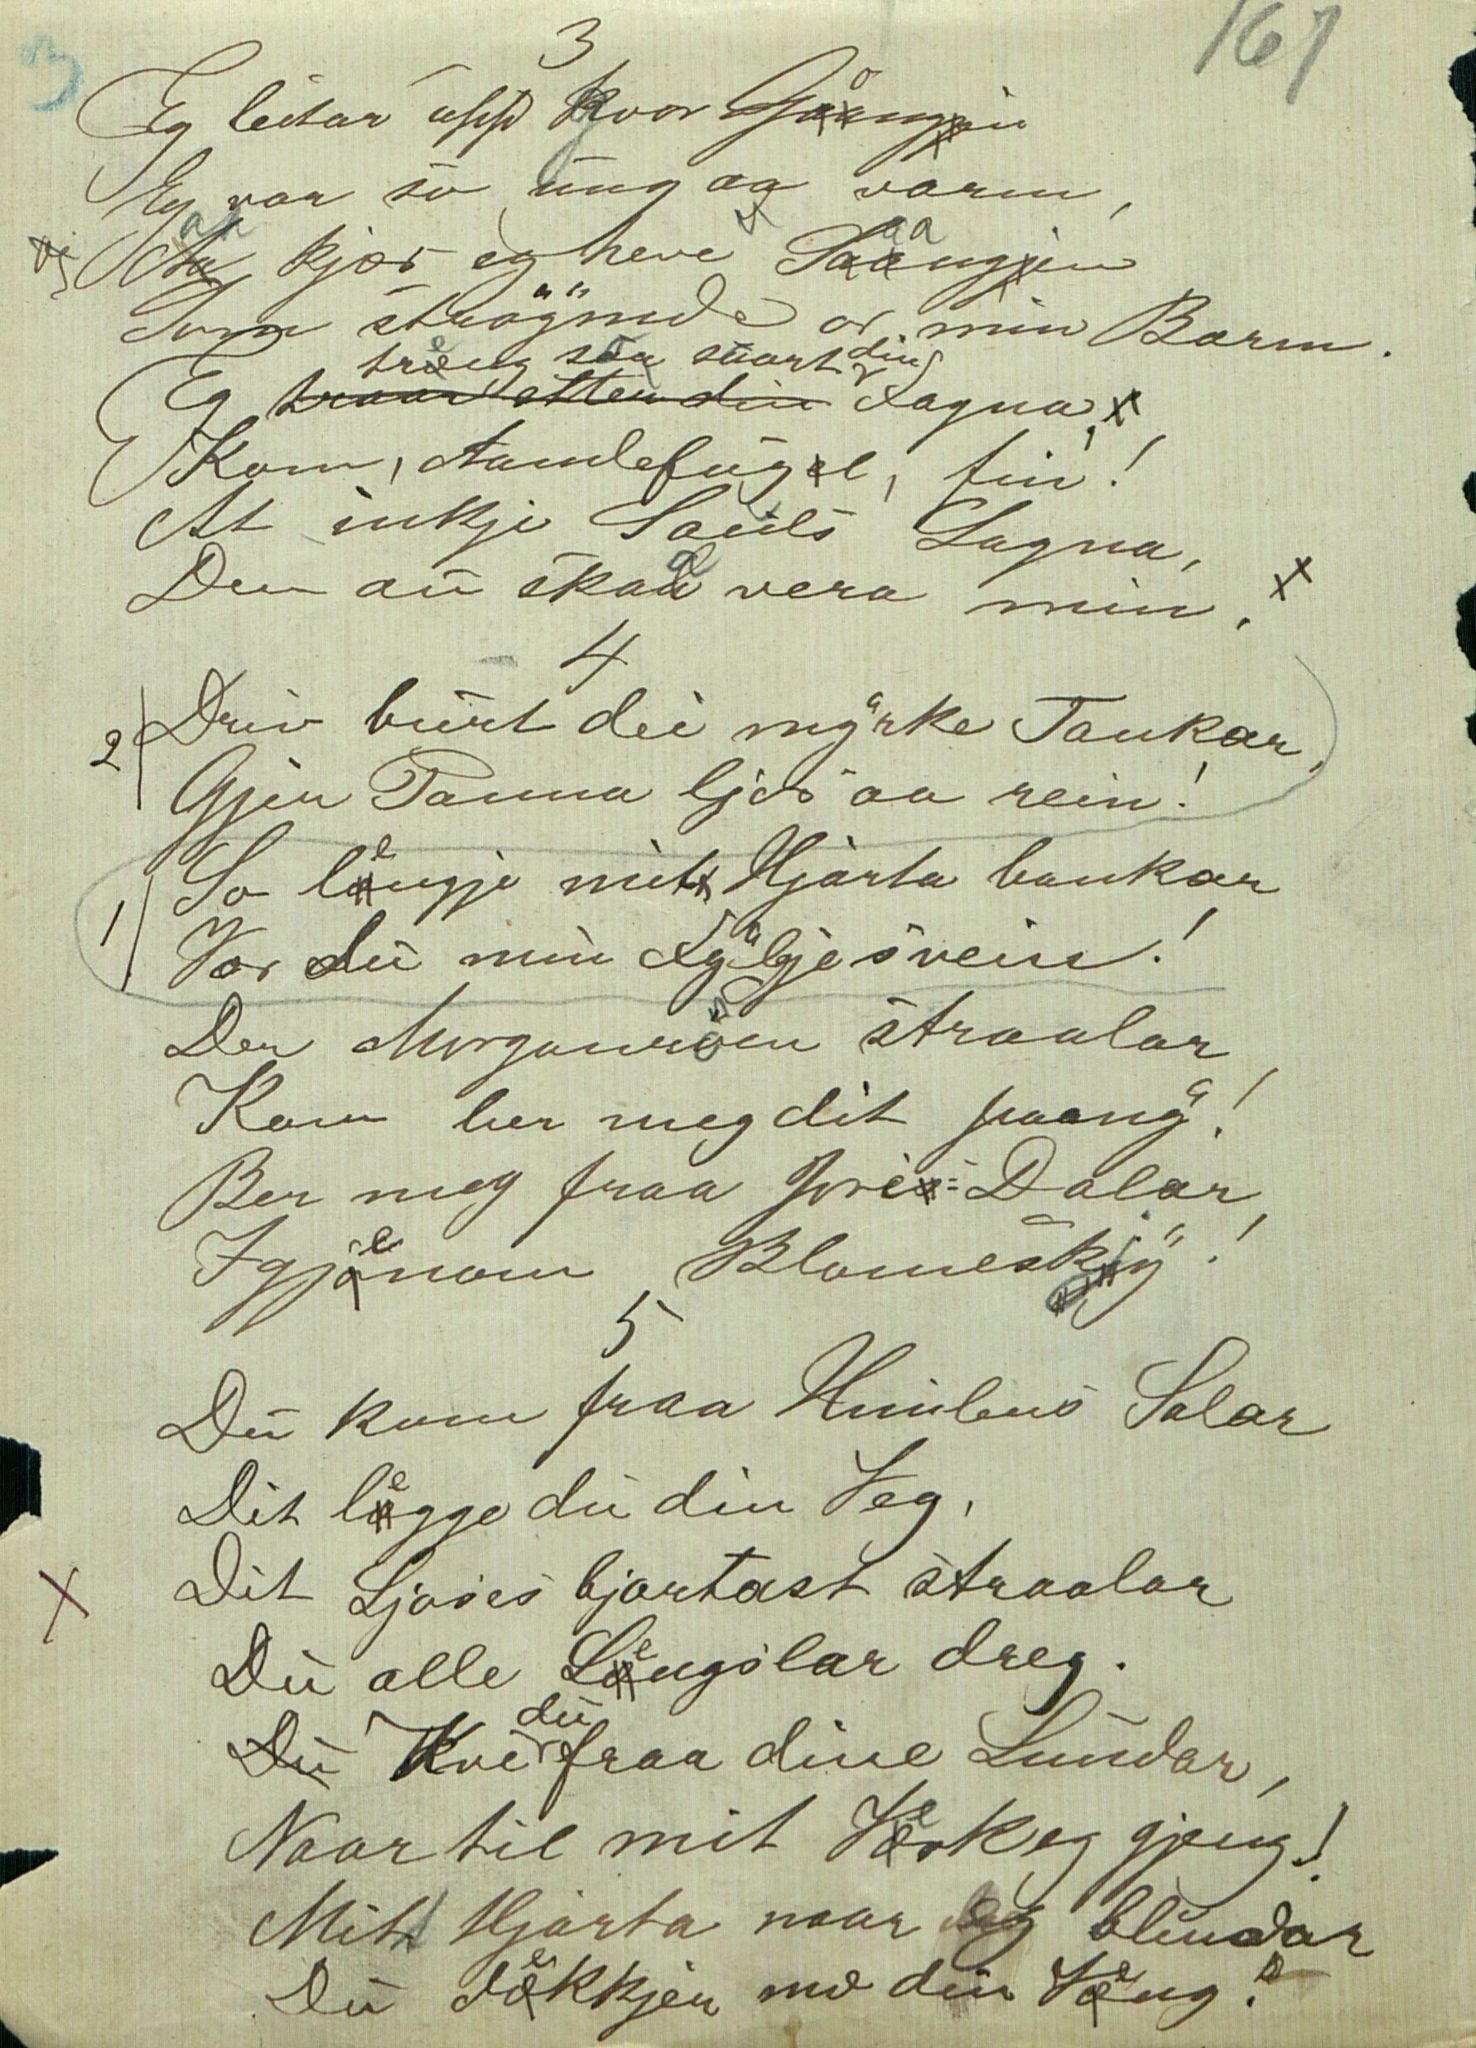 3
167
3
Eg leitar upp kvor Gaangjin
Eg var so ung aa varm,
Aa kjær eg heve Saangjen
Som strøymde or min Barm.
treng saa snart din
Eg traar etter din Fagna,
Kom, Aandefugel, fin!
At inkje Sauls Lagna,
Den au skaa vera min.
4
2 Driv burt dei myrke Tankar,
Gjer Panna ljos aa rein!
1 So lengje mitt Hjarta bankar
Ver du min Fylgjesvein!
Der Morgonroen straalar
Kom ber meg dit paany!
Ber meg fraa Gre-Dalar,
Igjenom Blomesky!
5
Du kom fraa Himlens Salar
Dit legge du din Veg,
Dit Ljoses bjartast straalar
Du alle Lengslar dreg.
du
Du Kve fraa dine Lundar,
Naar til mit Verk eg gjeng!
Mit Hjarta naar eg blundar
Du dekkjer mo din Veng!